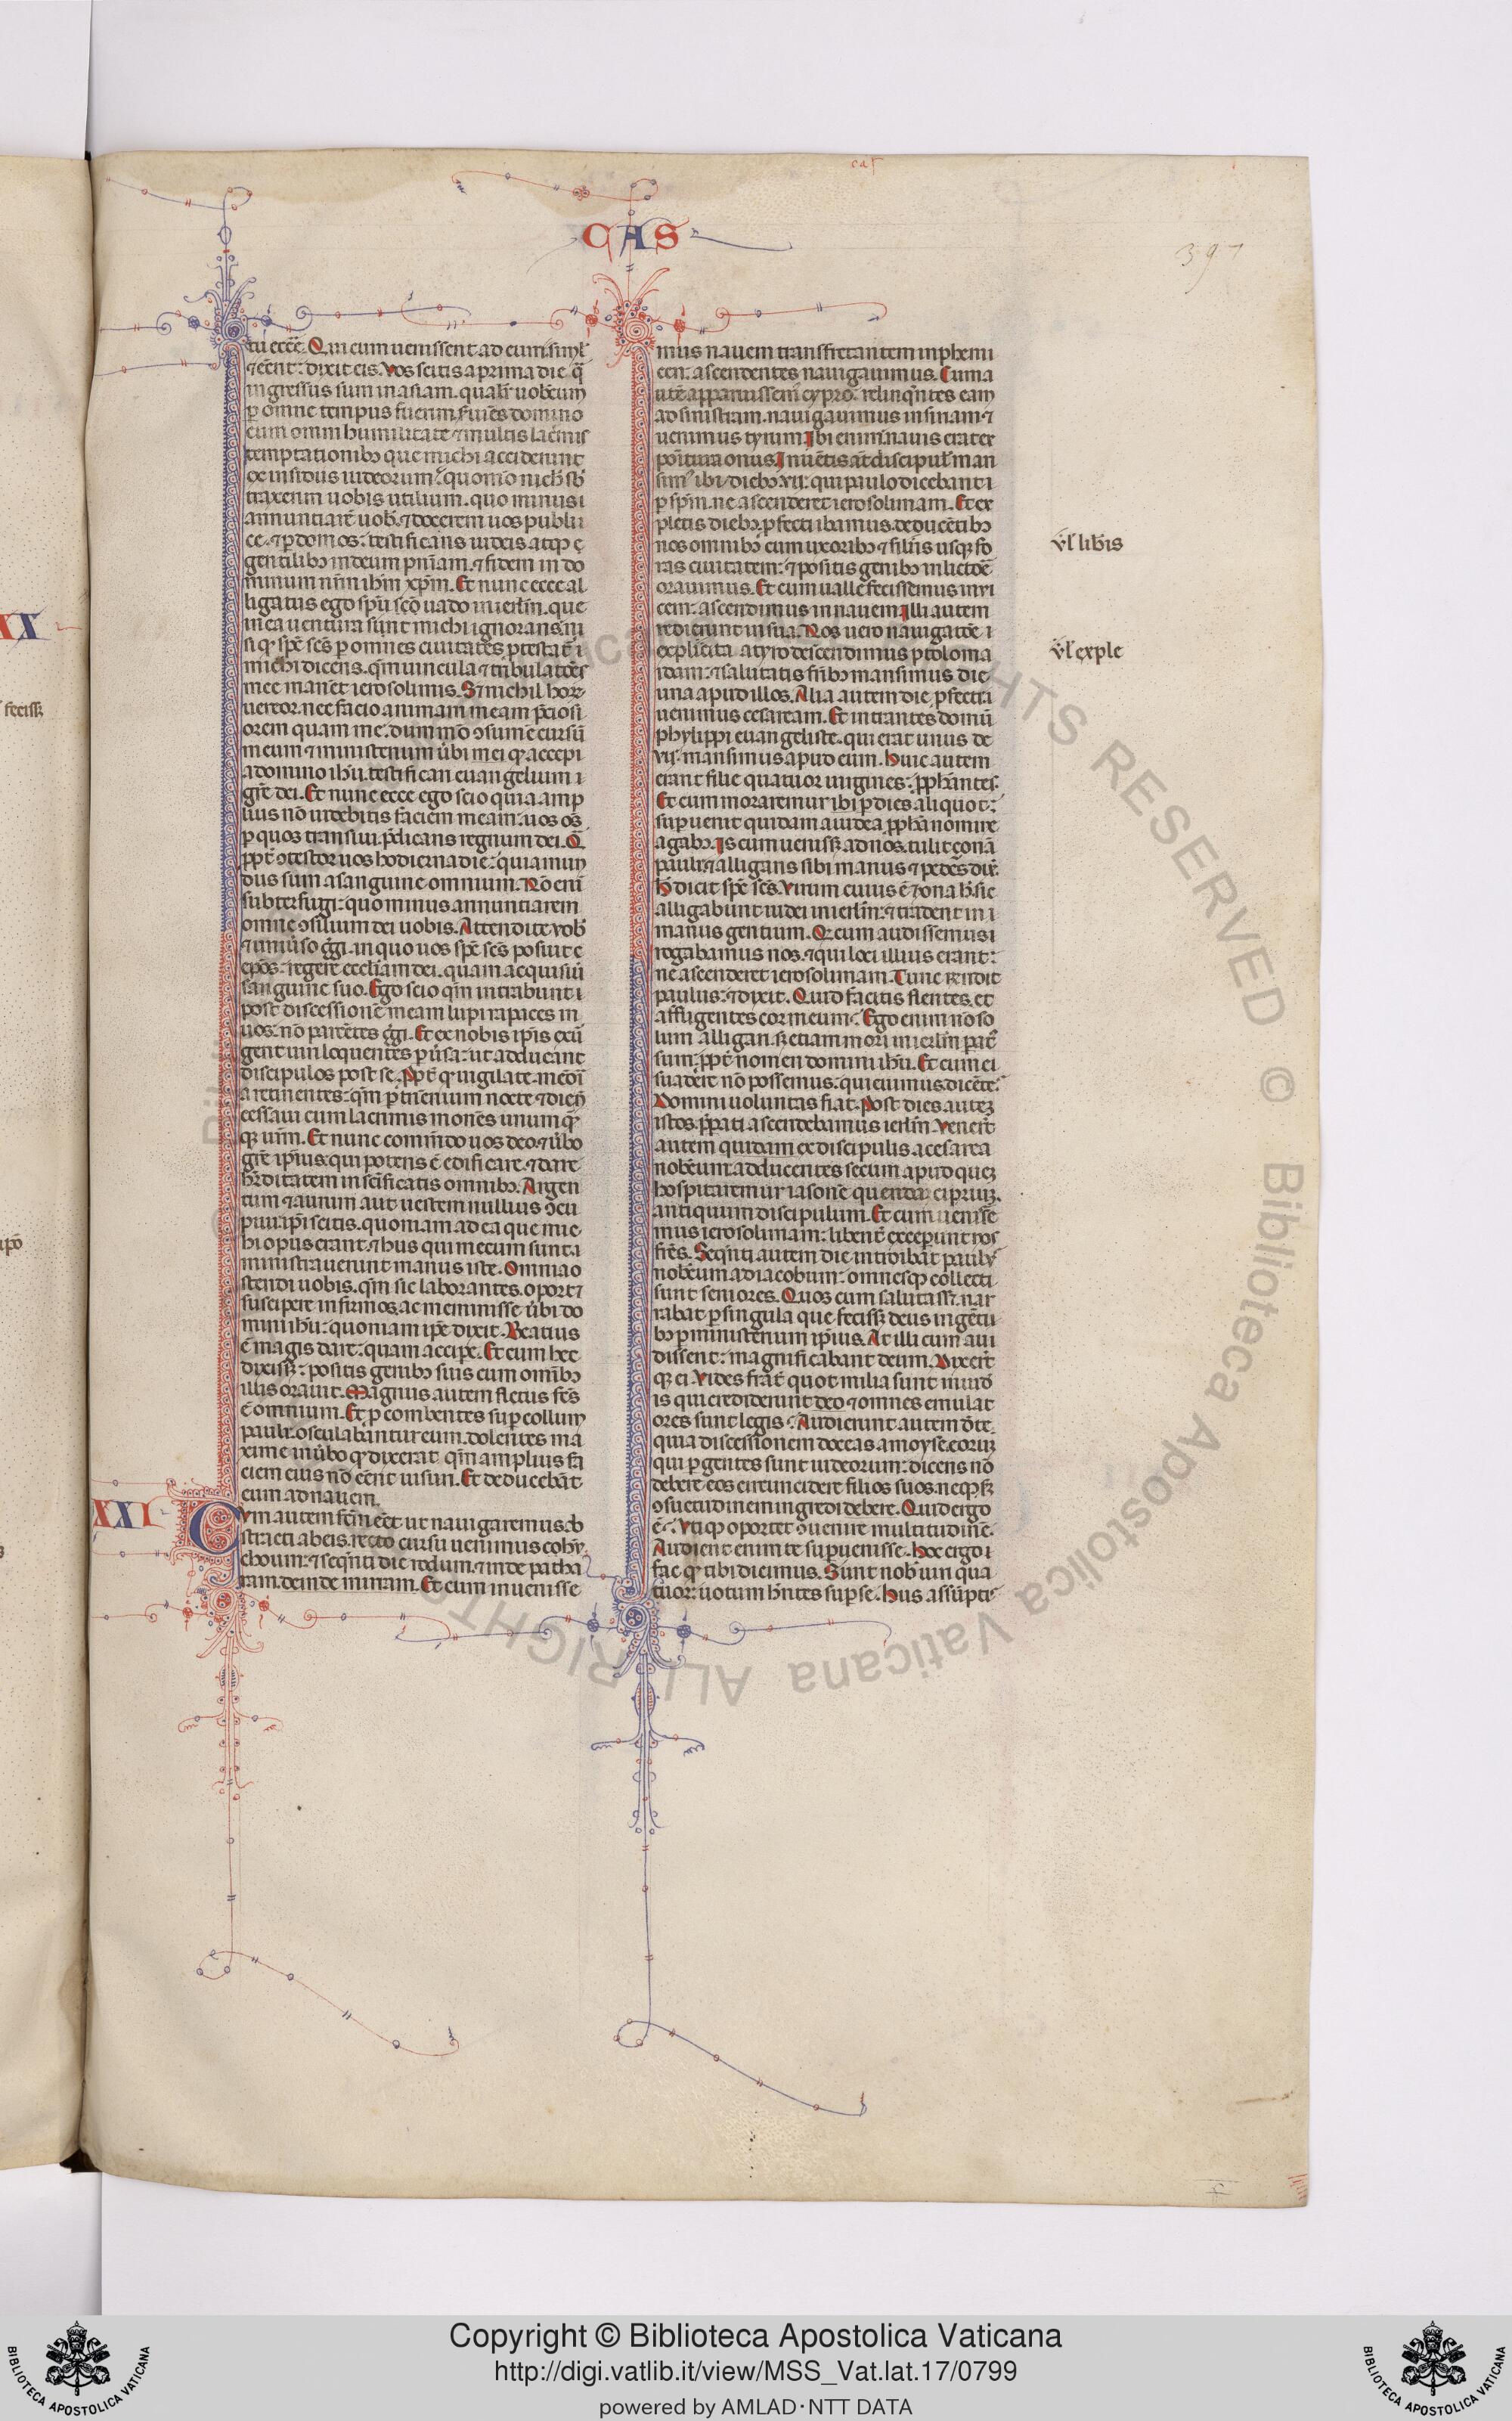 caſ
CAS
397
tū eccē. Qui cum uenissent ad eum. simyl'
⁊ eēnt: dixit eis. Vos scitis a prima die. q̄
ingressus sum in asiam. qualit̄ uobiscum
p omne tempus fuerim. ſuiēs domino
cum omni humilitate ⁊ multis lac̄mis
temptationibꝫ que michi acciderunt
ex insidiis iudeorum. quomō nich' sb̄
traxerim uobis utilium. quo minus i
annuntiarē uob'. ⁊ docerem uos publi
ce. ⁊ p domos: testificans iudeis atqꝫ e
gentilibꝫ in deum pniam. ⁊ fidem in do
minum nr̄m ih̄m xp̄m. Et nunc ecce al
ligatus ego spū sc̄o uado in ierl̄m. que
in ea uentura sunt michi ignorans. ni
si qꝫ sp̄c sc̄s p omnes ciuitates ptestat̄ i
michi dicens. qm̄ uincula ⁊ tribulatōes
mee manēt ierosolimis. Sꝫ nichil hoꝝ
uereor. nec facio animam meam p̄ciosi
orem quam me. dum mō ꝯsumē cursū
meum ⁊ ministerium ūbi mei qꝫ accepi
a domino ih̄u. testificari euangelium i
gr̄e dei. Et nunc ecce ego scio quia amp
lius nō uidebitis faciem meam. uos os̄
p quos transiui. p̄dicans regnum dei. Q̄
ppt̄ ꝯtestor uos hodierna die: quia mun
dus sum a sanguine omnium. Nō eni
subterfugi: quo minus annuntiarem
omne ꝯsilium dei uobis. Attendite uob'
⁊ uniūso gḡi. in quo uos sp̄c sc̄s posuit e
ep̄os: regere eccl̄iam dei. quam acquisiū
sanguine suo. Ego scio qm̄ intrabunt i
post discessionē meam lupi rapaces in
uos. nō parcētes gḡi. Et ex uobis ip̄is exu
gent uiri loquentes pūsa: ut adducant
discipulos post se. Ppt̄ qꝫ uigilate. mēoī
a retinentes: qm̄ p trienium nocte ⁊ die n̄
cessaui cum lacrimis monēs unum qꝫ
qꝫ ur̄m. Et nunc comm̄do uos deo. ⁊ ūbo
gr̄e ip̄ius. qui potens ē edificare. ⁊ dare
h̄editatem in sc̄ificatis omnibꝫ. Argen
tum ⁊ aurum aut uestem nullius ꝯcu
piui. ip̄i scitis. quoniam ad ea que mic
hi opus erant ⁊ hiis qui mecum sunt. a
ministrauerunt manus iste. Omnia o
stendi uobis. qm̄ sic laborantes. oportꝫ
suscipere infirmos. ac meminisse ūbi do
mini ih̄u: quoniam ip̄e dixit. Beatius
ē magis dare: quam accipe. Et cum hec
dixissꝫ: positis genibꝫ suis cum omībꝫ
illis orauit. Magnus autem fletus fc̄s
ē omnium. Et pcombentes sup collum
pauli. osculabantur eum. dolentes ma
xime in ūbo qꝫ dixerat. qm̄ amplius fa
ciem eius nō eēnt uisuri. Et deducebāt
eum ad nauem.
XXI
Cvm autem fc̄m eēt ut nauigaremus. ab
stracti ab eis. recto cursu uenimus cohȳ
choum: ⁊ seqn̄ti die rodum. ⁊ inde patha
ram. deinde miram. Et cum inuenisse
mus nauem transfretantem in pheni
cen: ascendentes nauigauimus. Cum a
utē apparuissem cypro. relinqn̄tes eam
ad sinistram. nauigauimus in siriam. ⁊
uenimus tyrum. Ibi enim nauis erat ex
poītura onus. Inuētis at̄ discipul' man
sim' ibi. diebꝫ .vij. qui paulo dicebant i
p sp̄m. ne ascenderet ierosolimam. Et ex
pletis diebꝫ. pfecti ibamus. deducētibꝫ
nos omnibꝫ cum uxoribꝫ ⁊ filiis usqꝫ fo
ras ciuitatem: ⁊ positis genibꝫ in lictoē
orauimus. Et cum uallē fecissemus inui
cem: ascendimus in nauem. Illi autem
redierunt in sua. Nos uero nauigatōe i
explicita a tyro descendimus ptoloma
idam: ⁊ salutatis fr̄ibꝫ mansimus die
una apud illos. Alia autem die pfecti
uenimus cesaream. Et intrantes domū
phylippi euangeliste. qui erat unus de
vij. mansimus apud eum. Huic autem
erant filie quatuor uirgines: pph̄antes.
Et cum moraremur ibi p dies aliquot:
supuenit quidam a iudea pph̄a nomine
agabꝫ. Is cum uenissꝫ ad nos. tulit çonā
pauli: ⁊ alligans sibi manus ⁊ pedes dix̄.
H̄ dicit sp̄c sc̄s. Virum cuius ē çona h̄ sic
alligabunt iudei in ierl̄m: ⁊ tradent in i
manus gentium. Qꝫ cum audissemus i
rogabamus nos. ⁊ qui loci illius erant:
ne ascenderet ierosolimam. Tunc rendit
paulus: ⁊ dixit. Quid facitis flentes. et
affligentes cor meum. Ego enim nō so
lum alligari. sꝫ etiam mori in ierl̄m pat̄
sum: ppt̄ nomen domini ih̄u. Et cum ei
suadere nō possemus: quieuimus. dicēte.
Domini uoluntas fiat. Post dies auteꝫ
istos. p̄pati ascendebamus ierl̄m. Venert̄
autem quidam ex discipulis a cesarea
nobiscum: adducentes secum apud queꝫ
hospitaremur iasonē quendā cipriuꝫ.
antiquum discipulum. Et cum uenisse
mus ierosolimam: libent̄ exceperunt nos
fr̄es. Seqn̄ti autem die. introibat paulꝰ
nobiscum ad iacobum: omnesqꝫ collecti
sunt seniores. Quos cum salutassꝫ. nar
rabat p singula que fecissꝫ deus in gētu
bꝫ p ministerium ip̄ius. At illi cum aui
dissent: magnificabant deum. Dixert̄
qꝫ ei. Vides frat̄ quot milia sunt in iude
is qui crediderunt deo ⁊ omnes emulat
ores sunt legis. Audierunt autem d̄ te.
quia discessionem doceas a moyse. eoruꝫ
qui p gentes sunt iudeorum: dicens nō
debere eos circuncidere filios suos. neqꝫ sꝫ
ꝯsuetudinem ingredi debere. Quid ergo
ē. Vtiqꝫ oportet ꝯuenire multitudinē.
Audient enim te supuenisse. Hoc ergo i
fac qꝫ tibi dicimus. Sunt nob' uiri qua
tuor: uotum h̄ntes sup se. Hiis assūptꝭ
vl' lib̄is
vl' exple
XX
fecissꝫ
Copyright © Biblioteca Apostolica Vaticana
http://digi.vatlib.it/view/MSS_Vat.lat.17/0799
powered by AMLAD·NTT DATA